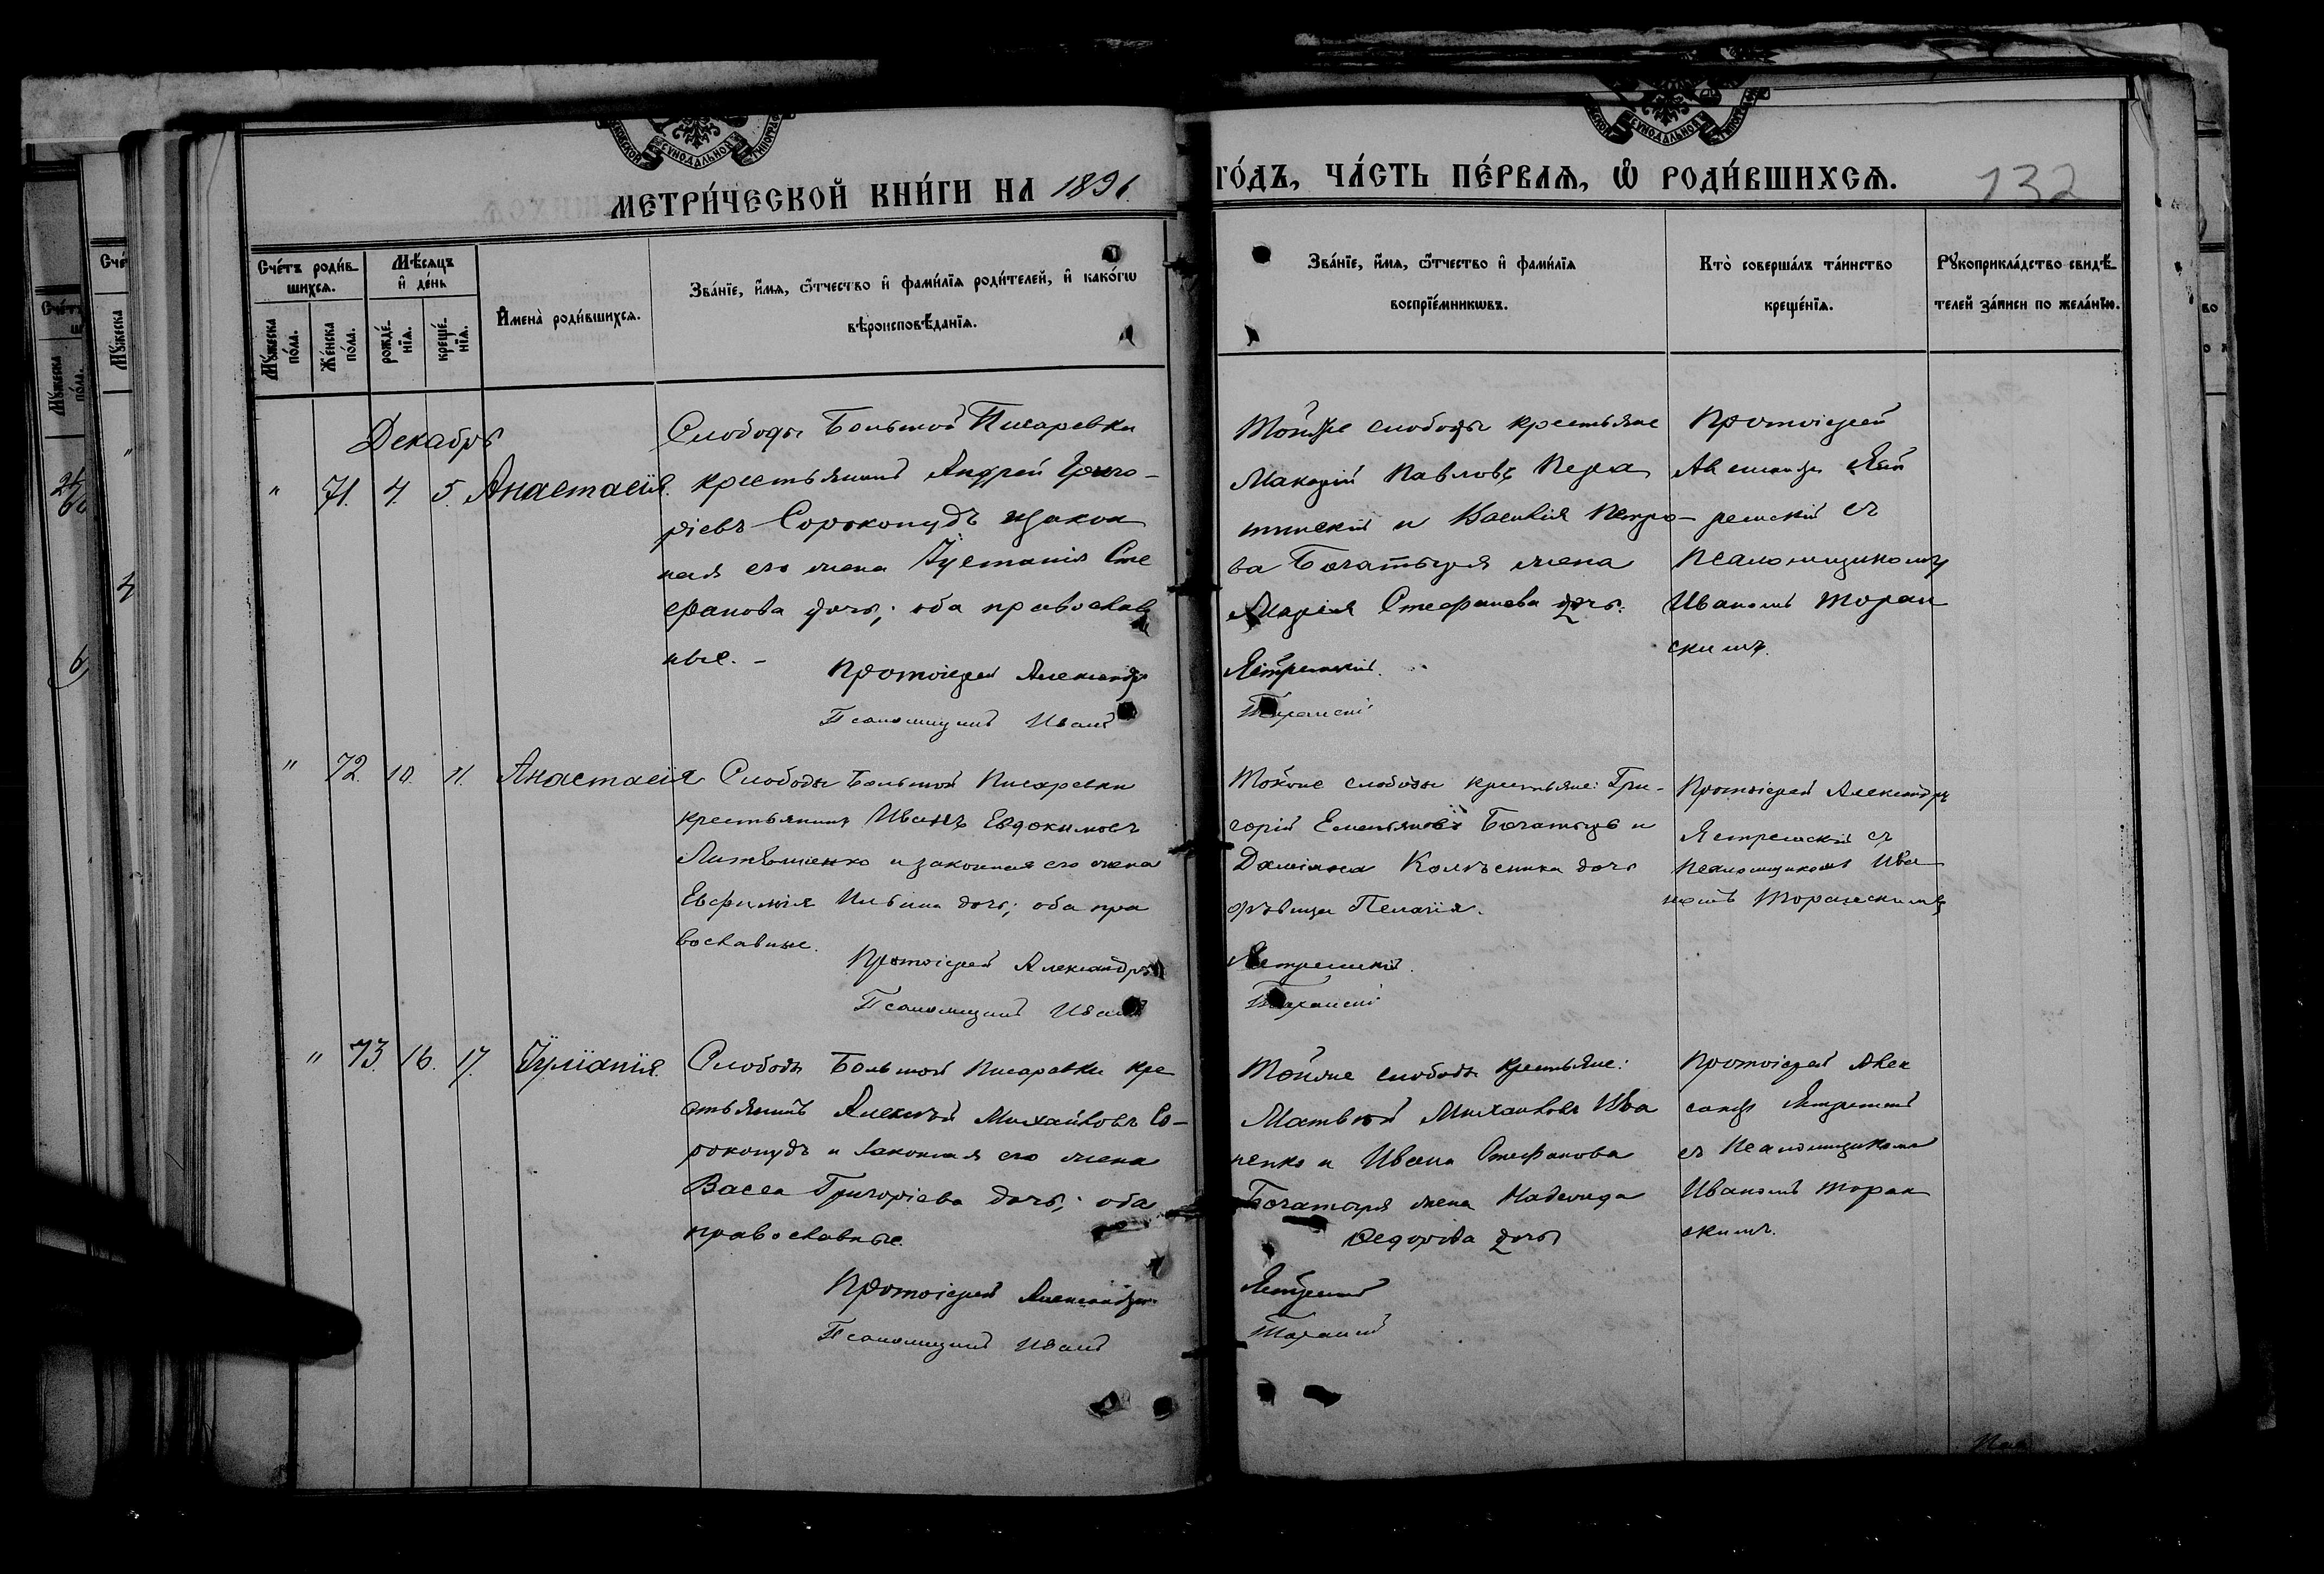 МЕТРИ́ЧЕСКОЙ КНИ́ГИ НА 1891
ГО́ДЪ, ЧА́СТЬ ПЕ́РВАѦ, Ѡ РОДИ́ВШИХСѦ.
132
Сче́тъ роди́в-
шихсѧ.
Мѣ́сѧцъ
и҆ де́нь
Му́жеска
по́ла.
Же́нска
по́ла.
рожде́-
нїѧ.
креще́-
нїѧ.
И҆мена̀ роди́вшихсѧ.
Зва́нїе, и҆́мѧ, ѻ҆́тчество и҆ фами́лїѧ роди́телей, и҆ како́гѡ
вѣроисповѣ́данїѧ.
Зва́нїе, и҆́мѧ, ѻ҆́тчество и҆ фами́лїѧ
воспрїе́мникѡвъ.
Кто̀ соверша́лъ та́инство
креще́нїѧ.
Рꙋкоприкла́дство свидѣ́-
телей за́писи по жела́нїю.
Декабрь
" 71. 4. 5. Анастасія.
Слободы Большой Писаревки
крестьянинъ Андрей Григо-
ріевъ Сорокопудъ и закон
ная его жена Іустинія Сте
фанова дочь; оба православ
ные. -
Протоіерей Александръ
Псаломщикъ Иванъ
Тойже слободы крестьяне
Макарій Павловъ
и Василія Петро-
ва Богатыря жена
Марія Стефанова дочь.
Ястремскій.
Торанскій
Протоіерей
Александръ Яст
ремскій съ
Псаломщикомъ
Иваномъ Торан
скимъ.
" 72. 10. 11. Анастасія
Слободы Большой Писаревки
крестьянинъ Иванъ Евдокимовъ
Литвиненко и законная его жена
Евфимія Ильина дочь; оба пра
вославные.
Протоіерей Александръ
Псаломщикъ Иванъ
Тойже слободы крестьяне: Гри-
горій Емельяновъ Богатырь и
Даміана Колѣсника дочь
дѣвица Пелагія.
Ястремскій.
Торанскій
Протоіерей Александръ
Ястремскій съ
Псаломщикомъ Ива
номъ Торанскимъ
" 73. 16. 17. Іуліанія.
Слободы Большой Писаревки кре
стьянинъ Алексѣй Михайловъ Со-
рокопудъ и законная его жена
Васса Григоріева дочь; оба
православные.
Протоіерей Александръ
Псаломщикъ Иванъ
Тойже слободы крестьяне:
Матвѣй Михайловъ Ива
ненко и Ивана Стефанова
Богатыря жена Надежда
Ѳедорова дочь
Ястремскій
Торанскій
Протоіерей Алек
сандръ Ястремскій
съ Псаломщикомъ
Иваномъ Торан
скимъ.